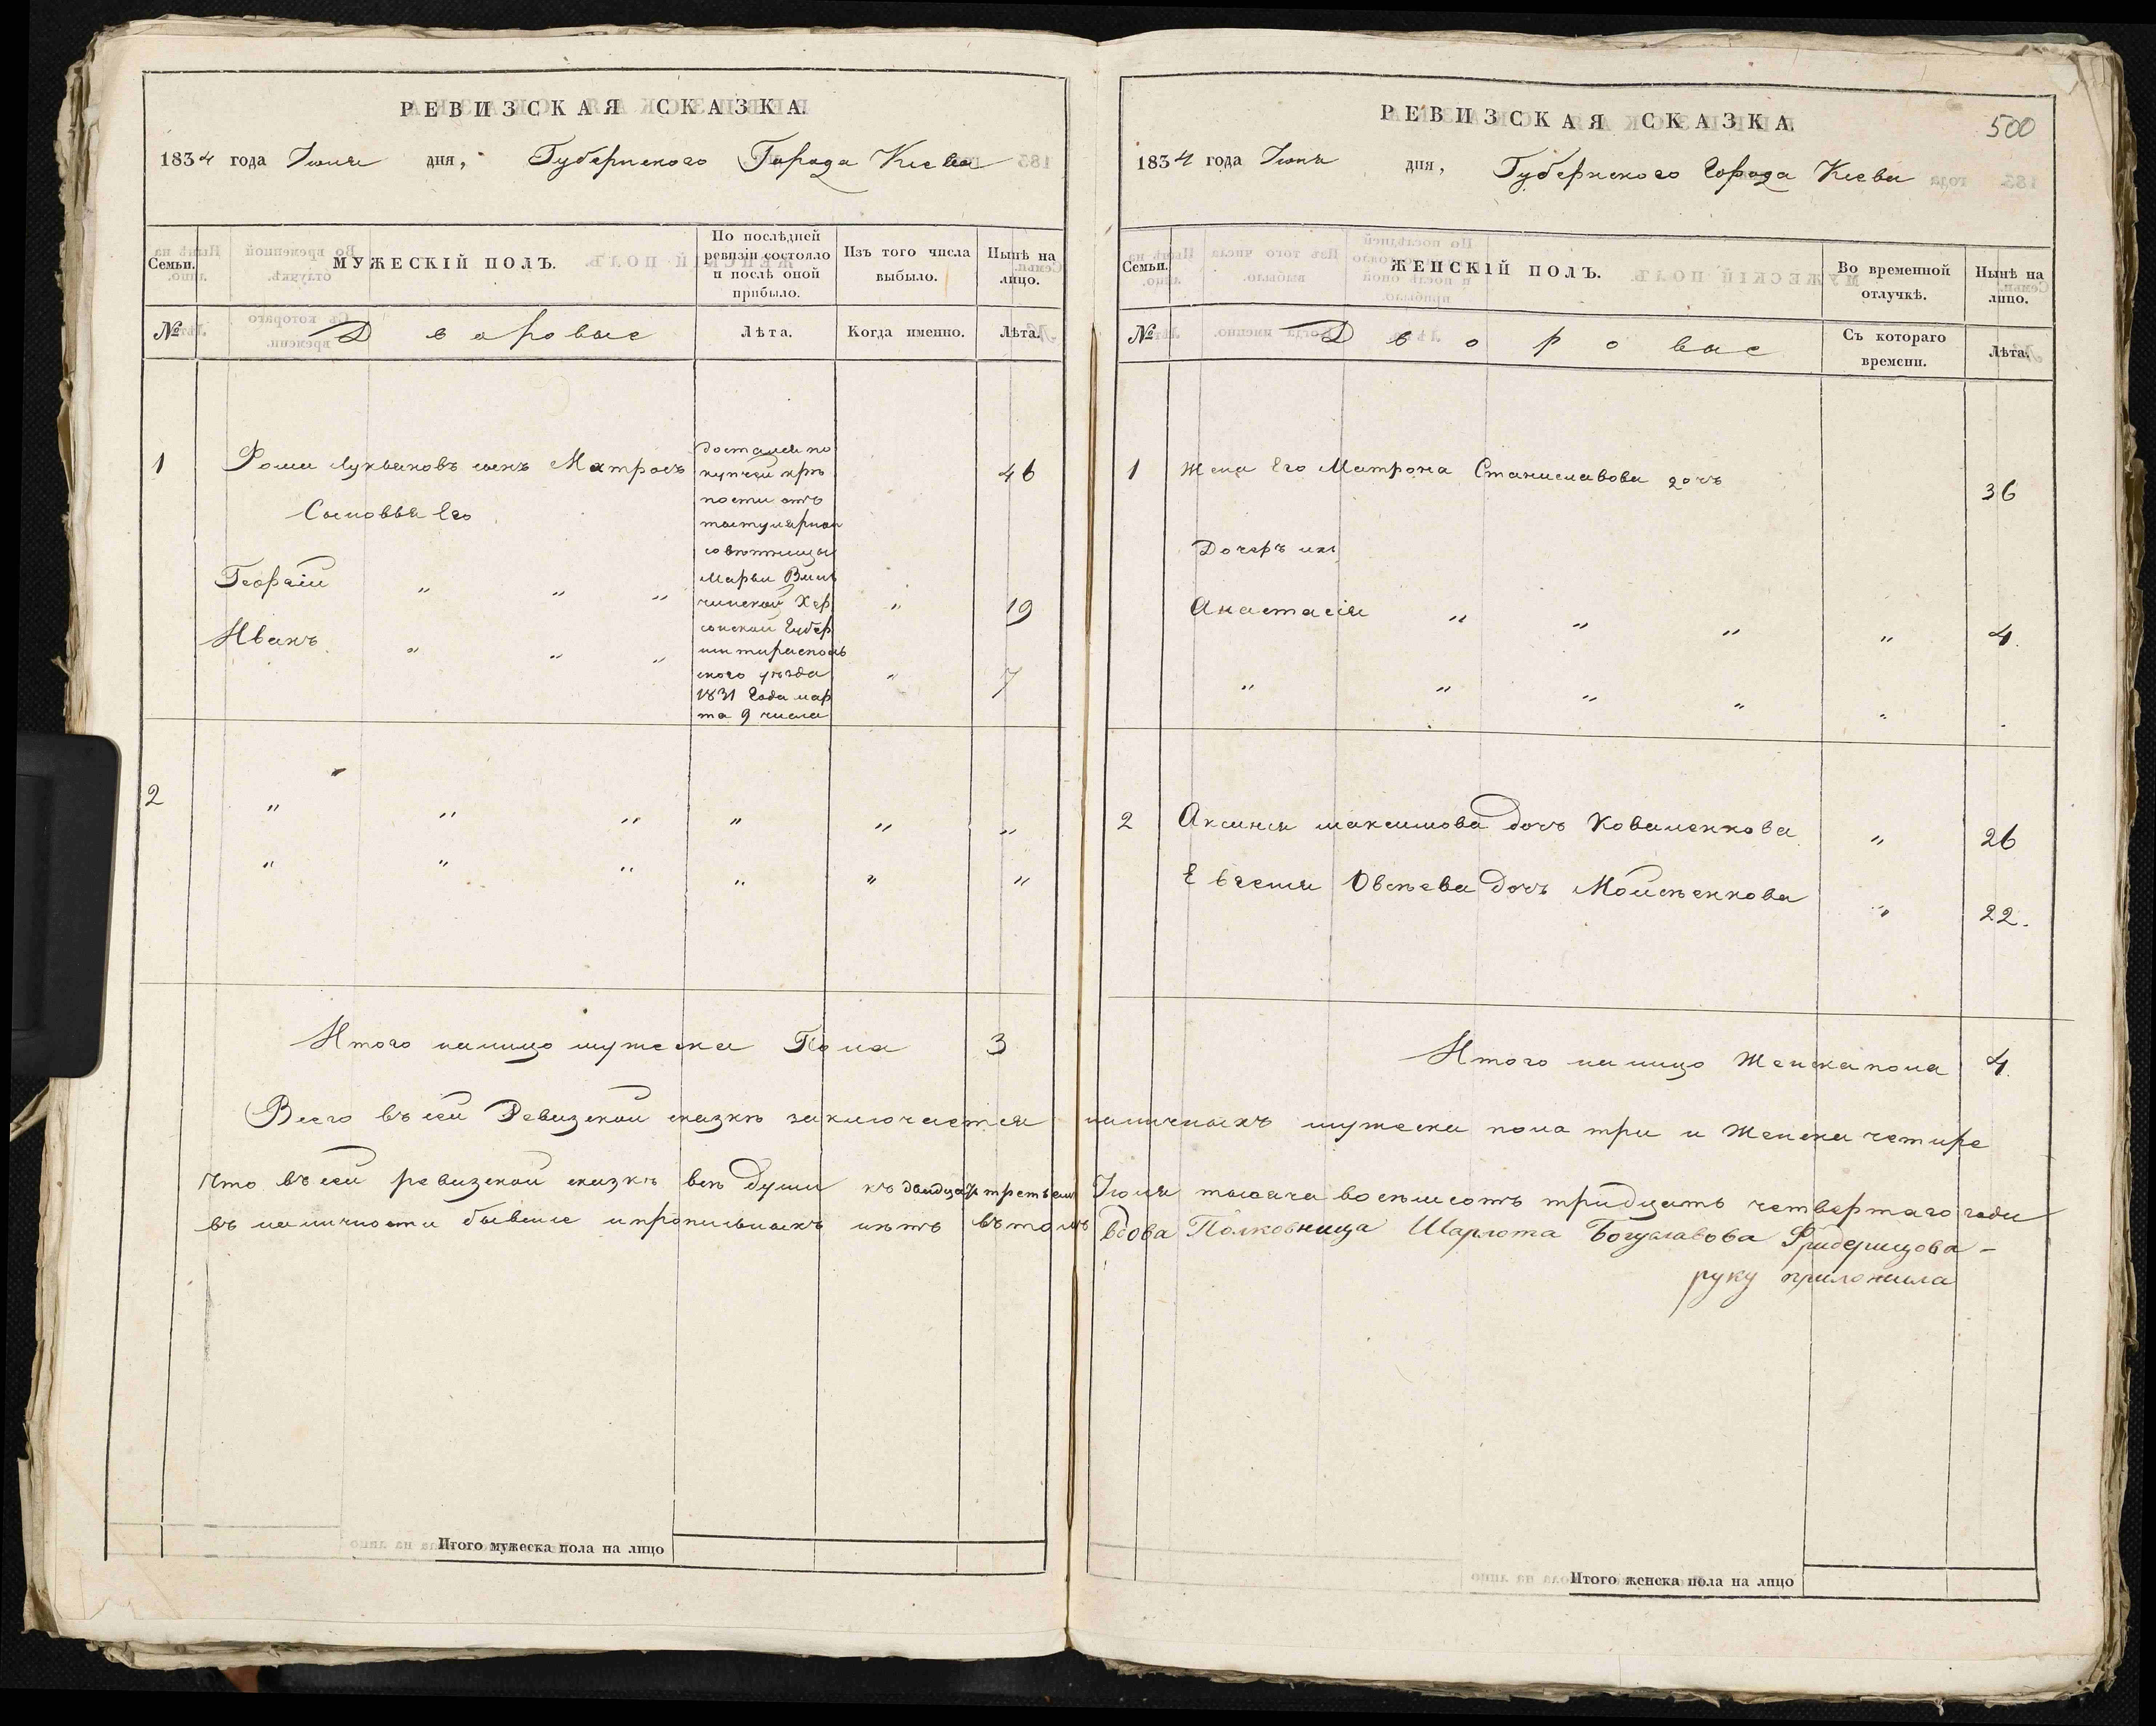 РЕВИЗСКАЯ СКАЗКА.
1834 года Июля дня, Губернского Города Киева
Семьи.
МУЖЕСКІЙ ПОЛЪ.
По послѣдней ревизіи состояло и послѣ оной прибыло.
Изъ того числа выбыло.
Нынѣ на лицо.
№
Дворовые
Лѣта.
Когда именно.
Лѣта.
1 Фома Лукьяновъ сынъ Матросъ 46
Достался по
купчей крѣ
пости отъ
титулярной
совѣтницы
Марьи
Хер
сонской Губер
ніи тирасполь
ского уѣзда
1831 Года мар
та 9 числа
Сыновья Его
Георгій " " " " 19
Иванъ " " " " 7
2 " " " " " "
" " " " " "
Итого налицо мужеска Пола 3
РЕВИЗСКАЯ СКАЗКА.
500
1834 года Июля дня, Губернского Города Киева
Семьи.
ЖЕНСКІЙ ПОЛЪ.
Во временной отлучкѣ.
Нынѣ на лицо.
№
Дворовые
Съ котораго времени.
Лѣта.
1 Жена Его Матрона Станиславова дочь 36
Дочерь ихъ
Анастасія " " " " 4.
" " " " "
2 Аксинья максимова дочь Коваленкова " 26
Евгенія дочь Моисѣенкова " 22.
Итого налицо Женска пола 4.
Всего въ сей Ревизской сказкѣ заключается наличныхъ мужеска пола три и Женска четире
Что въ сей ревизской сказкѣ всѣ души къ двадцать третьему Июля тысяча восемьсотъ тридцать четвертаго года
въ наличности бывшіе и прописныхъ нѣтъ въ томъ вдова Полковница Шарлота Богуславова Фридерицова -
руку приложила
Итого мужеска пола на лицо
Итого женска пола на лицо